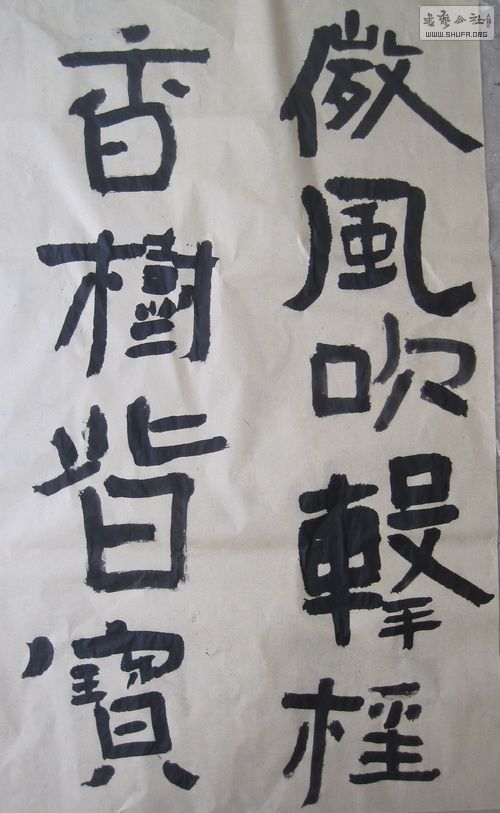 書藝公社
WWW.SHUFA.ORG
微風吹擊
百樹皆寶